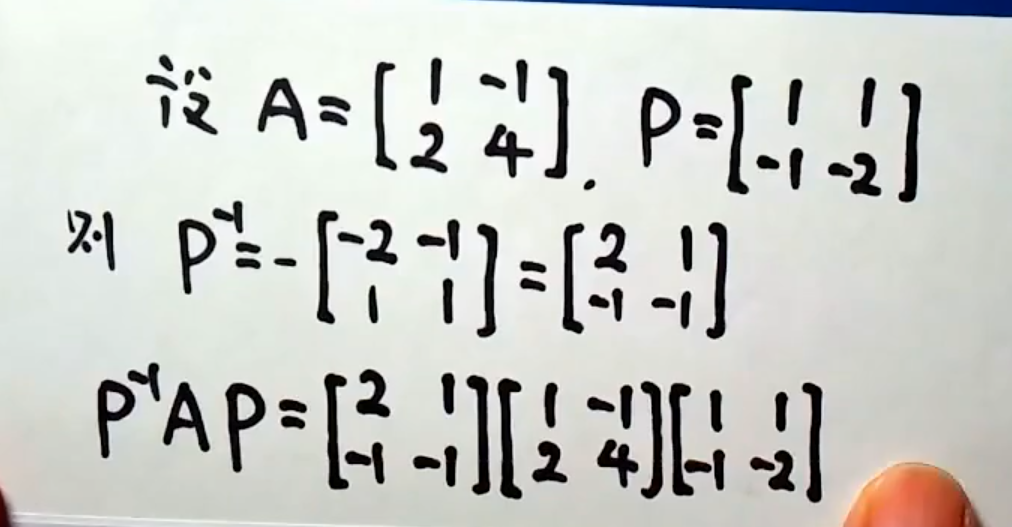 设 A = [1 -1; 2 4]. P = [1 1; -1 -2]
则 P⁻¹ = -[-2 -1; 1 1] = [2 1; -1 -1]
P⁻¹AP = [2 1; -1 -1][1 -1; 2 4][1 1; -1 -2]